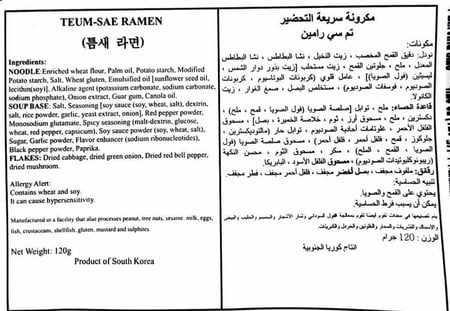 TEUM-SAE RAMEN
(틈새 라면)
Ingredients:
NOODLE: Enriched wheat flour, Palm oil, Modified
Potato starch, Salt, Wheat gluten, Emulsified oil [sunflower seed oil,
lecithin(soy)], Alkaline agent (potassium carbonate, sodium carbonate,
sodium phosphate), Onion extract, Guar gum, Canola oil.
SOUP BASE: Salt, Seasoning [soy sauce (soy, wheat, salt), dextrin,
salt, rice powder, garlic, yeast extract, onion], Red pepper powder,
Monosodium glutamate, Spicy seasoning (malt-dextrin, glucose,
wheat, red pepper, capsicum), Soy sauce powder (soy, wheat, salt),
Sugar, Garlic powder, Flavor enhancer (sodium ribonucleotides),
Black pepper powder, Paprika.
FLAKES: Dried cabbage, dried green onion, Dried red bell pepper,
dried mushroom.
Allergy Alert:
Contains wheat and soy.
It can cause hypersensitivity.
Manufactured in a facility that also processes peanut, tree nuts, sesame, milk, eggs,
fish, crustaceans, shellfish, gluten, mustard and sulphites
Net Weight: 120g
Product of South Korea
مكرونة سريعة التحضير
تم سي رامين
مكونات:
نودل: دقيق القمح المخصب ، زيت النخيل ، نشا البطاطس ، نشا البطاطس
المعدل ، ملح ، جلوتين القمح ، زيت مستحلب [زيت بذور دوار الشمس ،
ليسيثين (فول الصويا)] ، عامل قلوي (كربونات البوتاسيوم ، كربونات
الصوديوم ، فوسفات الصوديوم) ، مستخلص البصل ، صمغ الغوار ، زيت
الكانولا.
قاعدة الحساء: ملح ، توابل [صلصة الصويا (فول الصويا ، قمح ، ملح) ،
دكسترين ، ملح ، مسحوق أرز ، ثوم ، خلاصة الخميرة ، بصل] ، مسحوق
الفلفل الأحمر ، غلوتامات أحادية الصوديوم ، توابل حار (مالتوديكسترين ،
جلوكوز ، قمح ، فلفل أحمر ، فلفل أحمر) ، مسحوق صلصة الصويا (فول
الصويا ، القمح ، الملح) ، سكر ، مسحوق الثوم ، محسن النكهة
(ريبونوكليوتيدات الصوديوم) ، مسحوق الفلفل الأسود ، البابريكا.
رقائق: ملفوف مجفف ، بصل أخضر مجفف ، فلفل أحمر مجفف ، فطر مجفف.
تنبيه الحساسية:
يحتوي على القمح والصويا.
يمكن أن يسبب فرط الحساسية.
الوزن : 120 جرام
انتاج كوريا الجنوبية